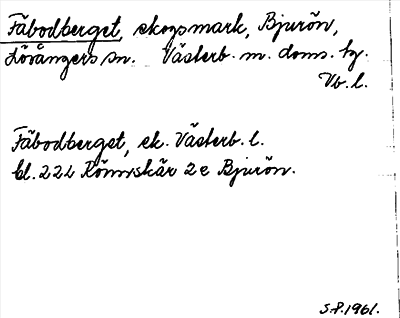 Fäbodberget, skogsmark, Bjurön,
Lövångers sn. Västerb. m. doms. tg.
Vb. l.
Fäbodberget, ek. Västerb. l.
bl. 222 Rönnskär 2e Bjurön.
S.P. 1961.